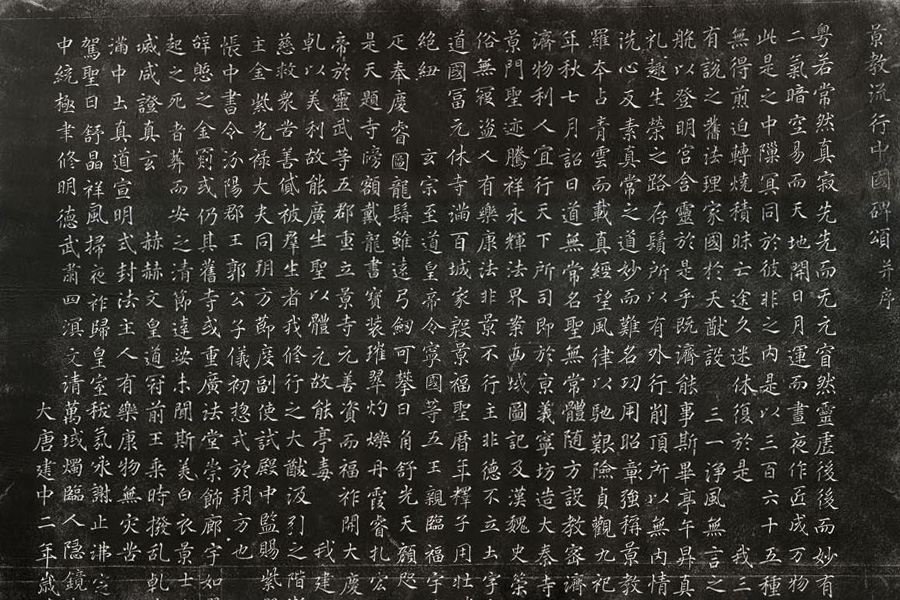 景教流行中國碑頌 并序
粵若常然真寂先先而无元窅然靈虛後後而妙有
二氣暗空易而天地開日月運而晝夜作匠成万物
此是之中隟冥同於彼非之內是以三百六十五種
無得煎迫轉燒積昧亡途久迷休復於是 我三
有說之舊法理家國於大猷設 三一淨風無言之
能以登明宮含靈於是乎既濟能事斯畢亭午昇真
礼趣生榮之路存鬚所以有外行削頂所以無內情
洗心反素真常之道妙而難名功用昭彰強稱景教
羅本占青雲而載真經望風律以馳艱險貞觀九祀
年秋七月詔曰道無常名聖無常體随方設教密濟
濟物利人宜行天下所司即於京義寧坊造大秦寺
景門聖迹騰祥永輝法界案西域圖記及漢魏史策
俗無寇盜人有樂康法非景不行主非德不立土宇
道國冨元休寺滿百城家殷景福聖曆年釋子用壯
絕紐 玄宗至道皇帝令寧國等五王親臨福宇
疋奉慶睿圖龍髯雖遠弓劒可攀日角舒光天顏咫
是天題寺牓額戴龍書寶裝璀翠灼爍丹霞睿扎宏
帝於靈武等五郡重立景寺元善資而福祚開大慶
乹以美利故能廣生聖以體元故能亭毒 我建
慈救衆苦善貸被羣生者我修行之大猷汲引之階
主金紫光祿大夫同朔方節度副使試殿中監賜紫
帳中書令汾陽郡王郭公子儀初揔戎於朔方也
辞憩之金罽或仍其舊寺或重廣法堂崇飾廊宇如
起之死者葬而安之清節達娑未聞斯美白衣景士
戚咸證真玄 赫赫文皇道冠前王乘時撥乱乹
滿中土真道宣明式封法主人有樂康物無灾苦
駕聖日舒晶祥風掃夜祚歸皇室秡氛永謝止沸定
中統極聿修明德武肅四溟文清萬域燭臨人隱鏡
大唐建中二年歲